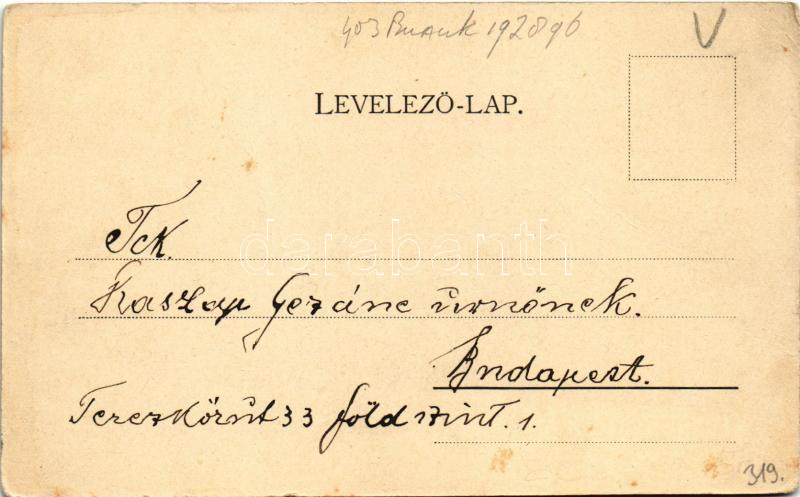 403 1920896
V
LEVELEZŐ-LAP.
Tck.
Kaszap Gezáne úrnőnek.
Budapest.
Terezkörút 33 föld szint. 1.
darabanth
319.